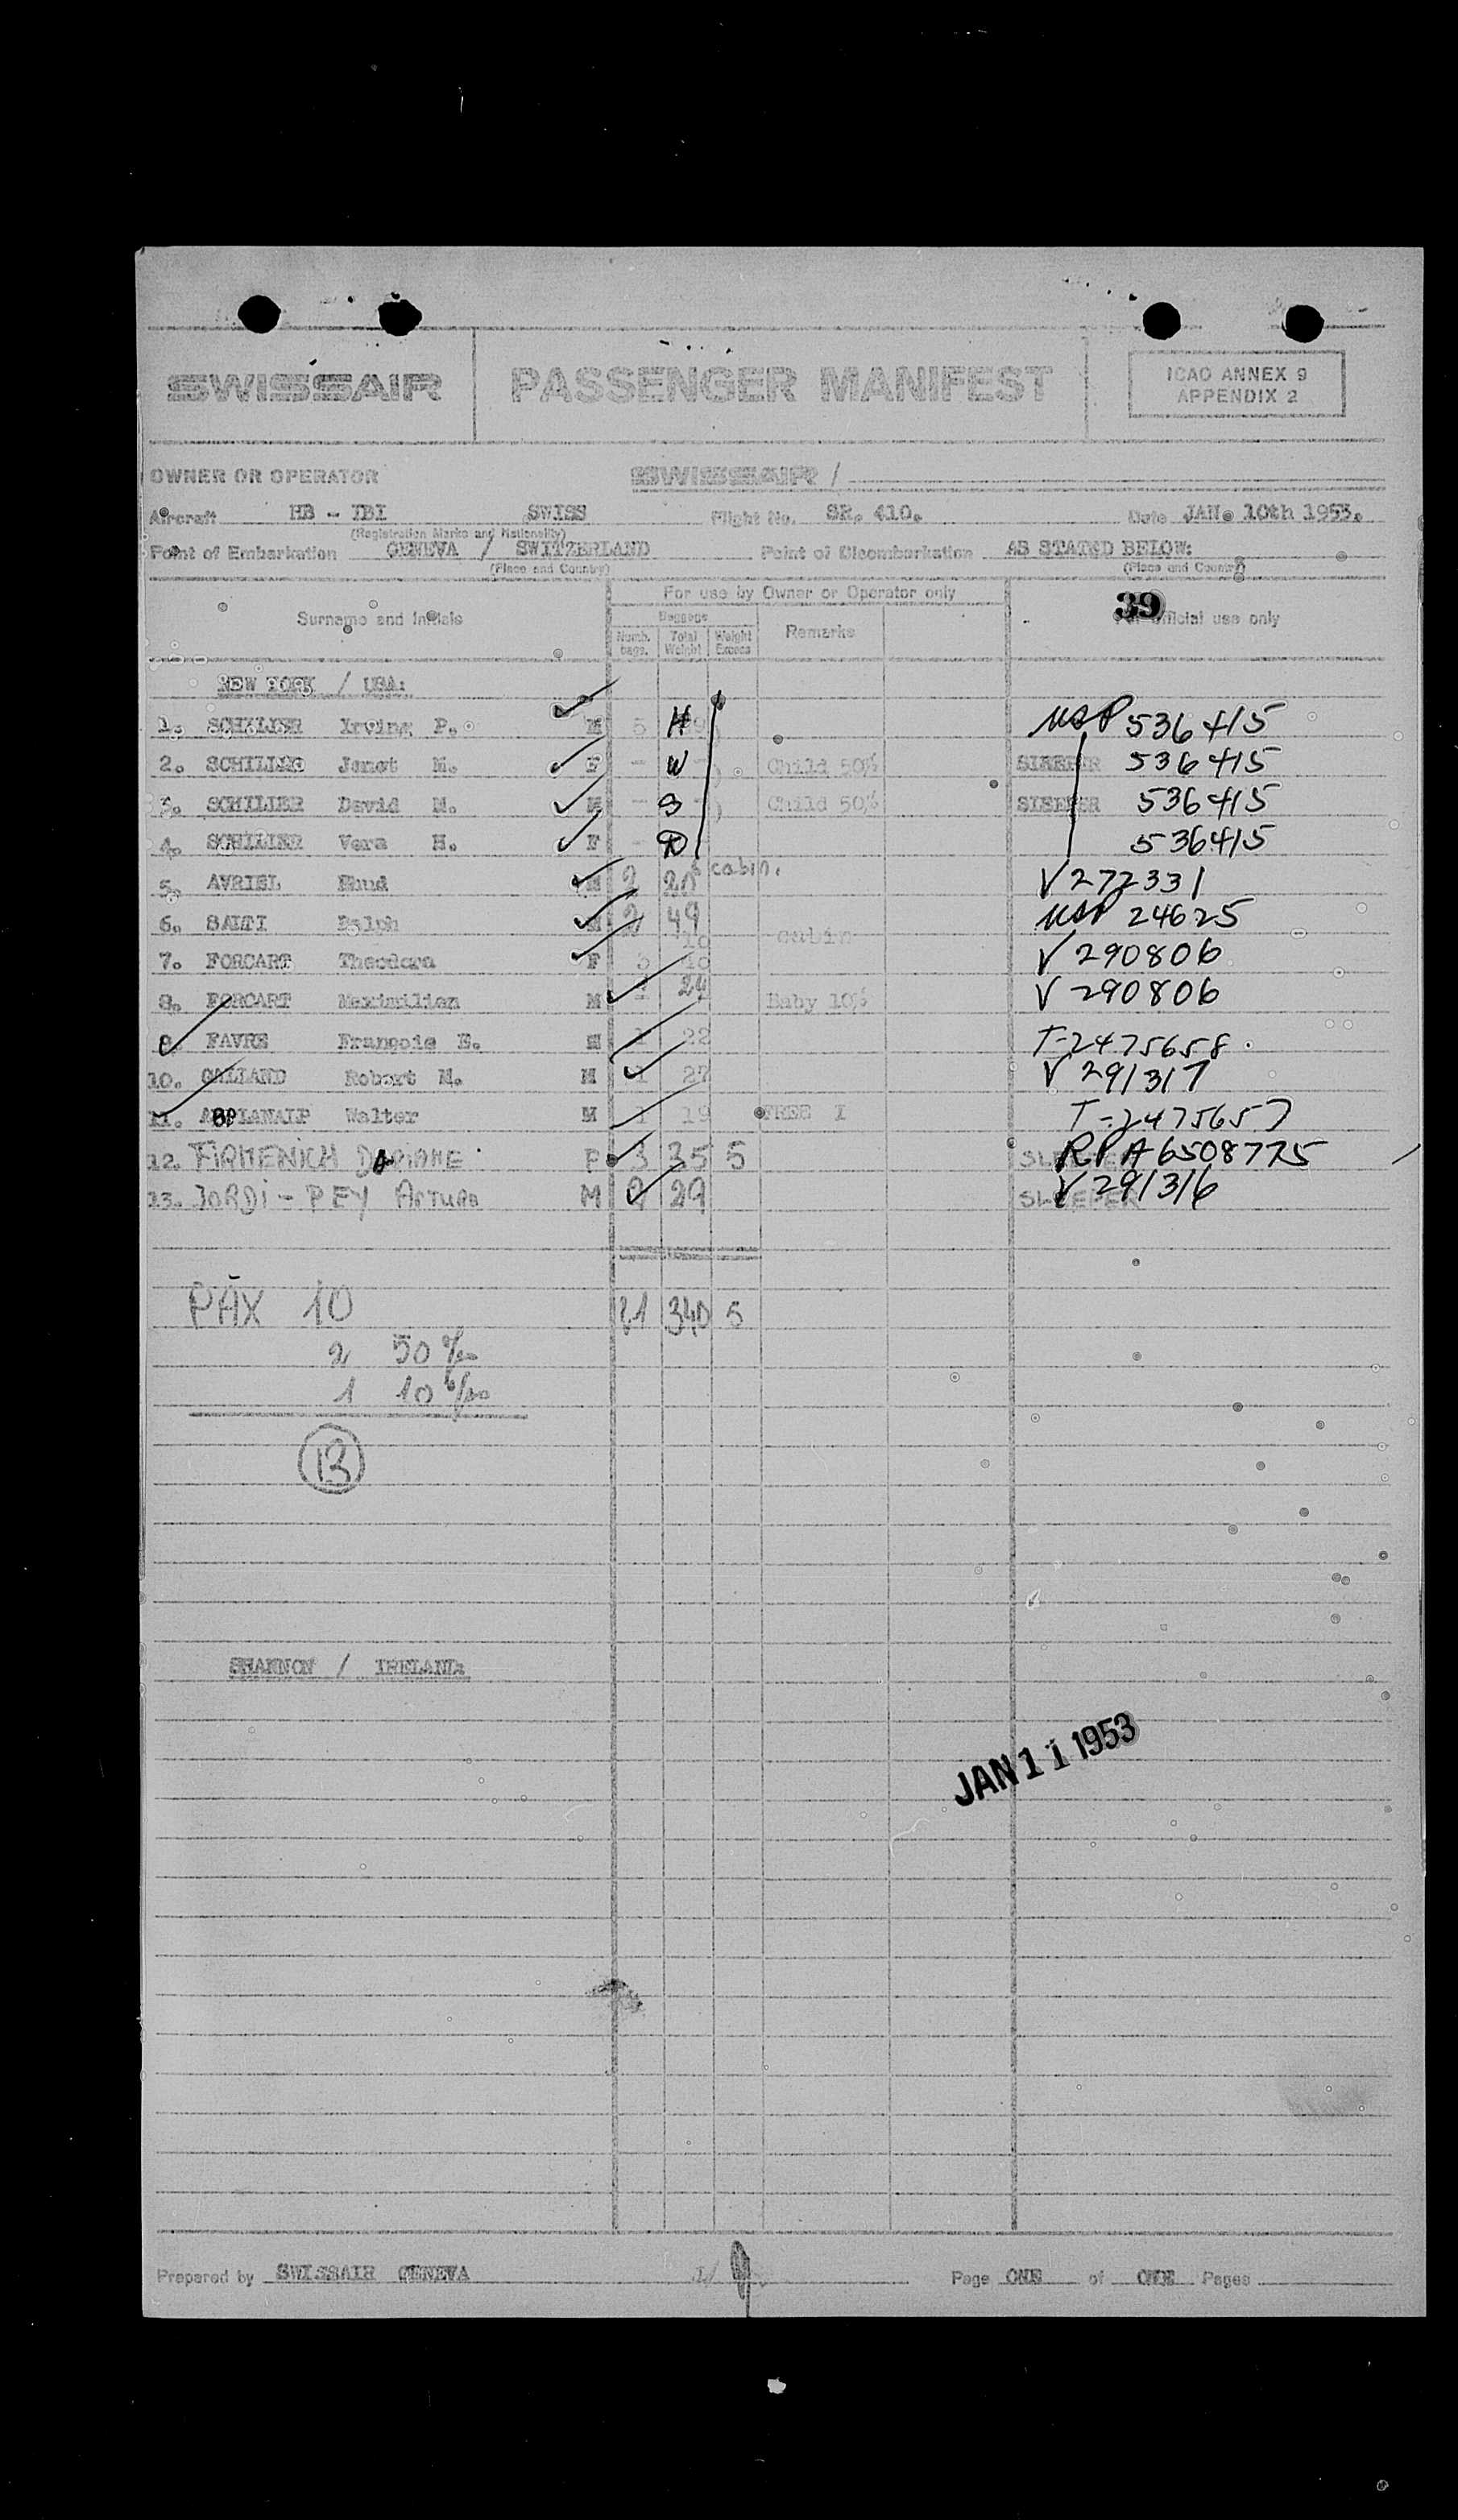 SWISSAIR PASSENGER MANIFEST ICAO ANNEX 9
APPENDIX 2
OWNER OR OPERATOR SWISSAIR /
Aircraft HB - IBI SWISS Flight No. SR. 410. Date JAN. 10th 1953.
(Registration Marks and Nationality)
Point of Embarkation GENEVA / SWITZERLAND Point of Disembarkation AS STATED BELOW:
(Place and Country) (Place and Country)
For use by Owner or Operator only
39
Surname and Initials Baggage Remarks For official use only
Numb. bags. Total Weight Weight Excess
NEW YORK / USA:
1. SCHILLER Irving P. M 5 H USP 536415
2. SCHILLER Janet M. F - W Child 50% SLEEPER 536415
3. SCHILLER David M. M - S Child 50% SLEEPER 536415
4. SCHILLER Vera H. F - D 536415
5. AVRIEL Ehud M 2 20 cabin. V 272331
6. SALTI Ralph M 2 49 USP 24625
10 cabin
7. FORCART Theodora F 3 V 290806
8. FORCART Maximilian M - 24 Baby 10% V 290806
9. FAVRE François E. M 1 22 T-2475658.
10. GALLAND Robert M. M 1 27 V 291317
11. ABPLANALP Walter M 1 19 FREE I T-2475657
12. FIRMENICH DARIANE F 3 35 5 SLEEPER RPA 6508775
13. JORDI - PEY Arturo M 2 29 SLEEPER V 291316
PAX 10 21 340 5
2 50%
1 10%
13
SHANNON / IRELAND:
JAN 11 1953
Prepared by SWISSAIR GENEVA Page ONE of ONE Pages